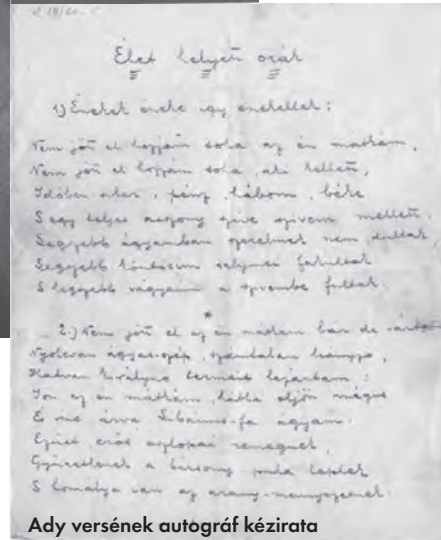 Élet helyett órák
1.) Énekek éneke így énekeltet:
Nem jön el hozzám soha az én mátkám,
Nem jön el hozzám soha, aki kellett,
Időben, siker, pénz, háború, béke
S egy teljes asszony szive szivem mellett,
Legszebb ágyamban szerelmet nem dultak,
Legszebb köntösöm selymei fakultak
S legszebb vágyaim a szivembe fultak.
*
2.) Nem jön el az én mátkám bár de vártam
Nyolcvan ágyas-szép, számtalan leányzó,
Hatvan királyné termeit bejártam:
Jön az én mátkám, hátha eljön mégis
És me árva Libánus-fa ágyam.
Ezüst erős oszlopai remegnek,
Gyüretlenek a bársony-puha leplek
S homálya van az arany-mennyezetnek.
Ady versének autográf kézirata